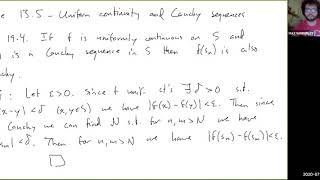 e 13.5 - Uniform continuity and Cauchy sequences
19.4. If f is uniformly continuous on S and
) is a Cauchy sequence in S then f(sn) is also
chy.
: Let ε>0. Since f unif. ct's ∃ δ>0 s.t.
x-y|<δ (x,y∈S) we have |f(x)-f(y)|<ε. Then since
Cauchy we can find N s.t. for n,m>N we have
sm|<δ. Then for n,m>N we have |f(sn)-f(sm)|<ε.
2020-07